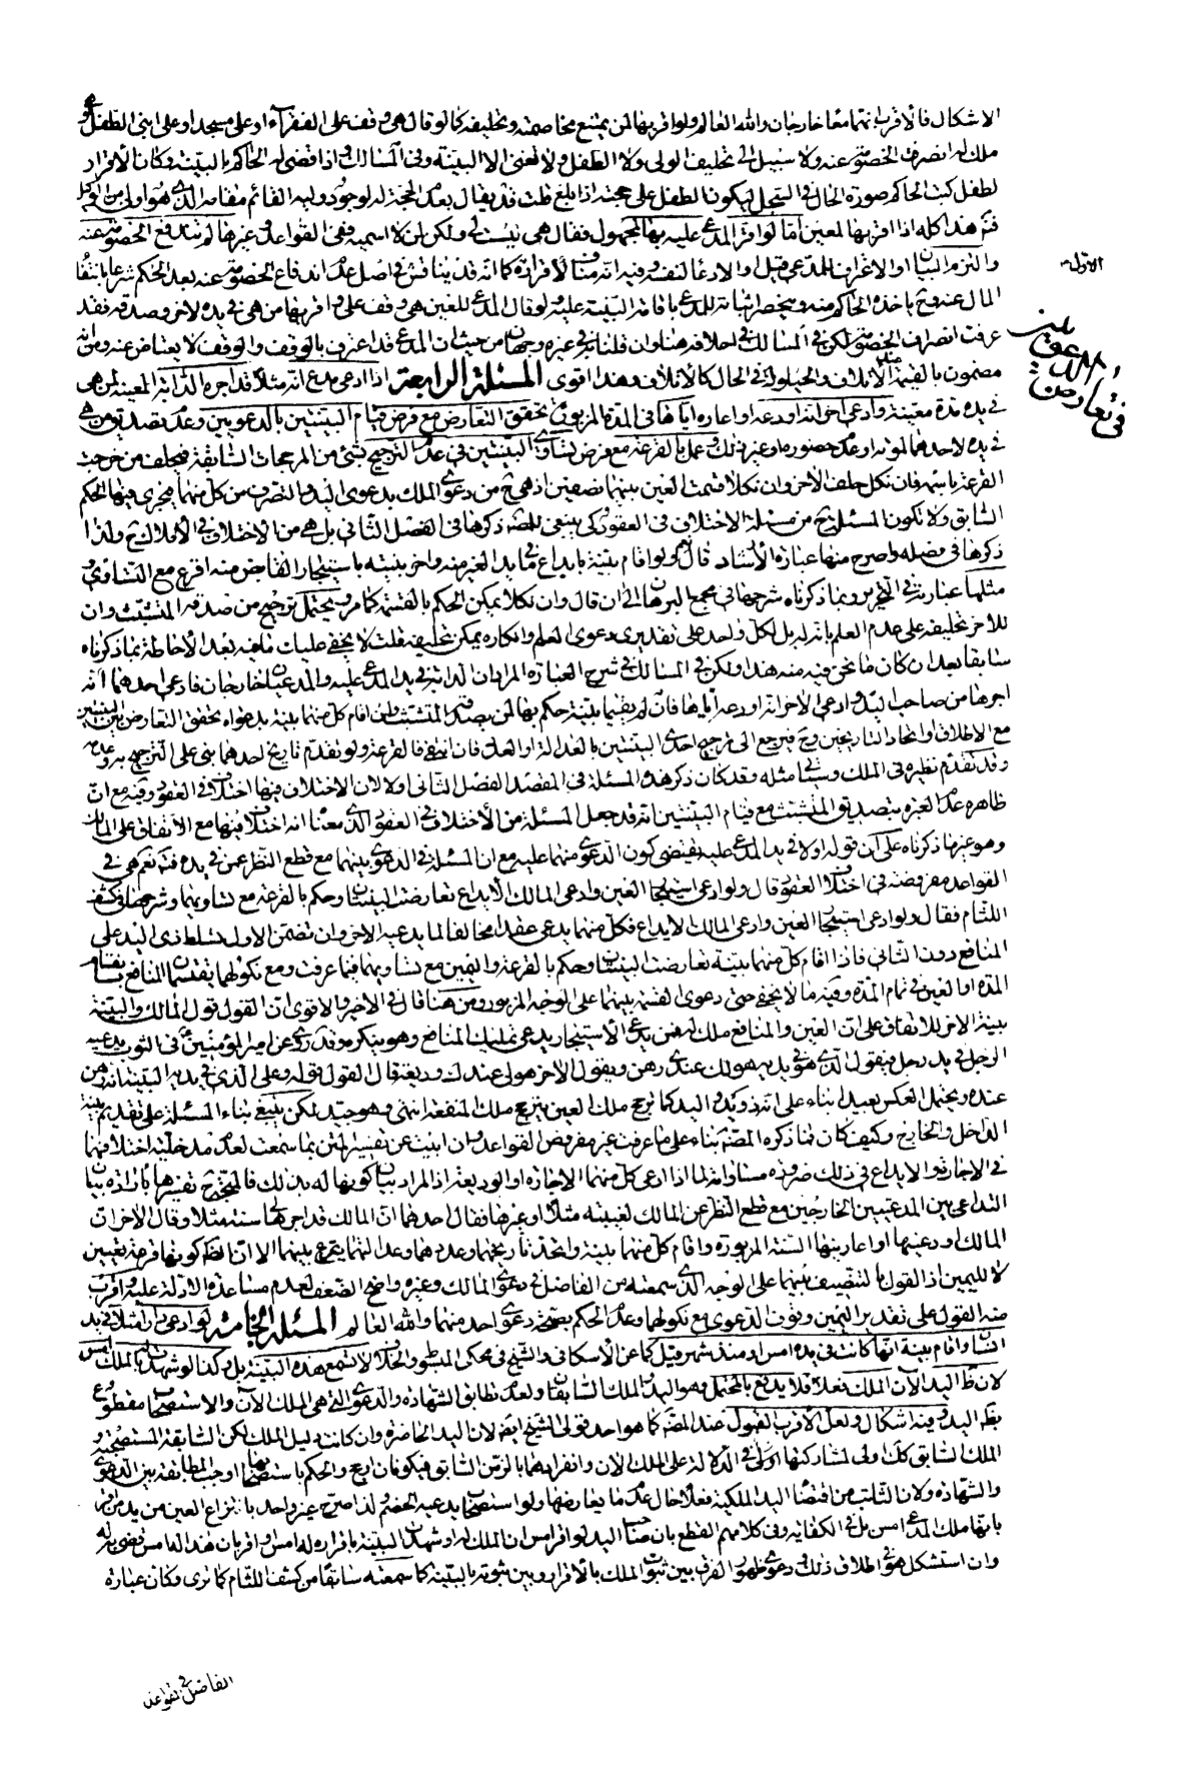 الاشكال فالاقرب انهما معا خارجان والله العالم ولو اقر بها لمن يمتنع مخاصمته وتحليفه كما لو قال هى وقف على الفقراء او على مسجد او على ابنى الطفل
ملك له انصرف الخصومة عنه ولا سبيل الى تحليف الولى ولا الطفل ولا تغنى الا البينة وفى المسالك واذا قضى له الحاكم بالبينة وكان الاقرار
لطفل كتب الحاكم صورة الحال فى السجل ليكون الطفل على حجته اذا بلغ قلت قد يقال بعدم الحجة له لوجود وليه القائم مقامه الذى هو اولى من
ثم هذا كله اذا اقر بها لمعين اما لو اقر المدعى عليه بها لمجهول فقال هى ليست لى ولكن لمن لا اسميه ففى القواعد وغيرها لم تندفع الخصومة عنه
والزم البيان او الاعتراف للمدعى وقيل او الادعاء لنفسه وفيه انه مناف لاقراره كما انه قد يناقش فى اصل عدم اندفاع الخصومة عنه بعد الحكم شرعا بانتفاء
المال عنه وح ياخذه الحاكم منه وينحصر اثباته للمدعى باقامة البينة عليه ولو قال المدعى للعين هى وقف على واقر بها من هى فى يده لاخر وصدقه فقد
عرفت انصراف الخصومة لكن فى المسالك فى احلافه هنا وان قلنا به فى غيره وجهان من حيث ان المدعى قد اعترف بالوقف والوقف لا يعتاض عنه ومن انه
مضمون بالقيمة عند الاتلاف والحيلولة فى الحال كالاتلاف وهذا اقوى المسئلة الرابعة اذا ادعى مدع انه مثلا قد اجره الدابة المعينة لمن هى
فى يده مدة معينة وادعى اخر انه اودعه او اعاره اياها فى المدة المزبورة تحقق التعارض مع فرض قيام البينتين بالدعويين وعدم تصديق من هى
فى يده لاحدهما لموته او عدم حضوره او غير ذلك وعمل بالقرعة مع فرض تساوى البينتين فى عدم الترجيح بشئ من المرجحات السابقة فيحلف من خرجت
القرعة باسمه فان نكل حلف الاخر وان نكلا قسمت العين بينهما نصفين اذ هى ح من دعوى الملك بدعوى اليد والتصرف من كل منهما فيجرى فيها الحكم
السابق ولا تكون المسئلة ح من مسئلة الاختلاف فى العقود كى ينبغى للمصنف ذكرها فى الفصل الثانى بل هى من الاختلاف فى الاملاك ولذا
ذكرها فى فصله واصرح منها عبارة الارشاد قال ولو اقام بينة بايداع ما فى يد الغير منه واخر بينته باستيجار القابض منه اقرع مع التساوى و
مثلها عبارته فى التحرير وبما ذكرناه شرحها فى مجمع البرهان الى ان قال وان نكلا يمكن الحكم بالقسمة كما مر ويحتمل ترجيح من صدقه المتشبث وان
للاخر تحليفه على عدم العلم بانه له بل لكل واحد على تقديرى دعوى العلم وانكاره يمكن تحليفه قلت لا يخفى عليك ما فيه بعد الاحاطة بما ذكرناه
سابقا بعد ان كان ما نحن فيه منه هذا ولكن فى المسالك فى شرح العبارة المراد ان الدابة فى يد المدعى عليه والمدعيان خارجان فادعى احدهما انه
اجرها من صاحب اليد وادعى الاخر انه اودعه اياها فان لم يقيما بينة حكم بها لمن يصدقه المتشبث وان اقام كل منهما بينة بدعواه تحقق التعارض بين البينتين
مع الاطلاق واتحاد التاريخين وح فيرجع الى ترجيح احدى البينتين بالعدالة او العدد فان انتفى فالقرعة ولو تقدم تاريخ احدهما بنى على الترجيح به وعدمه
وقد تقدم نظيره فى الملك وسياتى مثله وقد كان ذكر هذه المسئلة فى المقصد الفصل الثانى اولا لان الاختلاف فيها اختلاف فى العقود وفيه مع ان
ظاهره عدم العبرة بتصديق المتشبث مع قيام البينتين انه قد جعل المسئلة من الاختلاف فى العقود الذى معناه انه اختلاف فيها مع الاتفاق على المالك
وهو غير ما ذكرناه على ان قوله اولا فى يد المدعى عليه يقتضى كون الدعوى منهما عليه مع ان المسئلة فى الدعوى بينهما مع قطع النظر عمن فى يده ثم نعم هى فى
القواعد مفروضة فى اختلاف العقود قال ولو ادعى استيجار العين وادعى المالك الايداع تعارضت البينتان وحكم بالقرعة مع تساويهما وشرحها فى كشف
اللثام فقال ولو ادعى استيجار العين وادعى المالك الايداع فكل منهما يدعى عقدا مخالفا لما يدعيه الاخر وان تضمن الاول تسلط ذى اليد على
المنافع دون الثانى فاذا اقام كل منهما بينة تعارضت البينتان وحكم بالقرعة واليمين مع تساويهما فيما عرفت ومع نكولهما يقتسمان المنافع بانقسام
المدة او العين فى تمام المدة وفيه ما لا يخفى حتى دعوى القسمة بينهما على الوجه المزبور ومن هنا قال فى الاخير والاقوى ان القول قول المالك والبينة
بينة الاخر للاتفاق على ان العين والمنافع ملك له فمن يدعى الاستيجار يدعى تمليك المنافع وهو ينكره وقد روى عن امير المؤمنين فى الثوب يدعيه
الرجل فى يد رجل فيقول الذى هو فى يديه هو لك عندى رهن ويقول الاخر هو لى عندك وديعة قال القول قوله وعلى الذى فى يديه البينة انه رهن
عنده ويحتمل العكس بعيدا بناء على انه ذو يد واليد كما ترجح ملك العين ترجح ملك المنفعة انتهى وهو جيد لكن ينبغى بناء المسئلة على تقديم بينة
الداخل والخارج وكيف كان فما ذكره المصنف بناء على ما عرفت غير مفروض القواعد وان ابيت عن تفسير المتن بما سمعت لعدم مدخلية اختلافهما
فى الاجارة والايداع فى ذلك ضرورة مساواته لما اذا ادعى كل منهما الاجارة او الوديعة اذ المراد بيان كونها له بذلك فالمتجه تفسيرها بارادة بيان
التداعى بين المدعيين الخارجين مع قطع النظر عن المالك لغيبته مثلا او غيرها فقال احدهما ان المالك قد اجرنيها سنة مثلا وقال الاخر ان
المالك اودعنيها او اعارينها السنة المزبورة واقام كل منهما بينة واتحد تاريخهما وعددهما وعدالتهما يقرع بينهما الا ان الظاهر كونها قرعة تعيين
لا لليمين اذ القول بالتنصيف بينهما على الوجه الذى سمعته من الفاضل فى دعوى المالك وغيره واضح الضعف لعدم مساعدة الادلة عليه واقرب
منه القول على تقدير اليمين وقوف الدعوى مع نكولهما وعدم الحكم بصحة دعوى احد منهما والله العالم المسئلة الخامسة لو ادعى دارا مثلا فى يد
انسان واقام بينة انها كانت فى يده امس او منذ شهر قيل كما عن الاسكافى والشيخ فى محكى المبسوط والخلاف لا تسمع هذه البينة بل وكذا لو شهدت له بالملك امس
لان ظاهر اليد الآن الملك فعلا فلا يدفع بالمحتمل وهو اليد او الملك السابقان ولعدم تطابق الشهادة والدعوى التى هى الملك الآن والاستصحاب مقطوع
بظاهر اليد وفيه اشكال ولعل الاقرب القبول عند المصنف كما هو احد قولى الشيخ ايضا لان اليد الحاضرة وان كانت دليل الملك لكن السابقة المستصحبة و
الملك السابق كذلك اولى لمشاركتها اولى فى الدلالة على الملك الآن وانفرادهما بالزمن السابق فيكونان ارجح والحكم باستصحابهما اوجب المطابقة بين الدعوى
والشهادة ولان الثابت من اقتضاء اليد الملكية فعلا حال عدم ما يعارضها ولو استصحاب يد عينه الخصم ولذا صرح غير واحد بانتزاع العين من يد من اقر
بانها ملك المدعى امس بل فى الكفاية وفى كلامهم القطع بان صاحب اليد لو اقر امس ان الملك له او شهدت البينة باقراره له امس او اقر بان هذا له امس قضى به له
وان استشكل هو فى اطلاق ذلك ودعوى ظهور الفرق بين ثبوت الملك بالاقرار وبين ثبوته بالبينة كما سمعته سابقا من كشف اللثام كما ترى وكان عبارة
الاول
فى تعارض
الدعويين
الفاضل فى القواعد